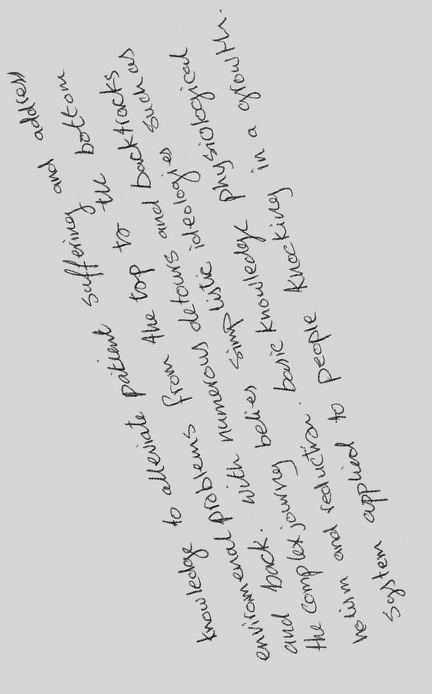 knowledge to alleviate patient suffering and address
environmenal problems from the top to the bottom
and back. with numerous detours and backtracks
the complex journy belies simp listic ideologies such as
holism and reduction. basic knowledge physiological
system applied to people knocking in a growth.